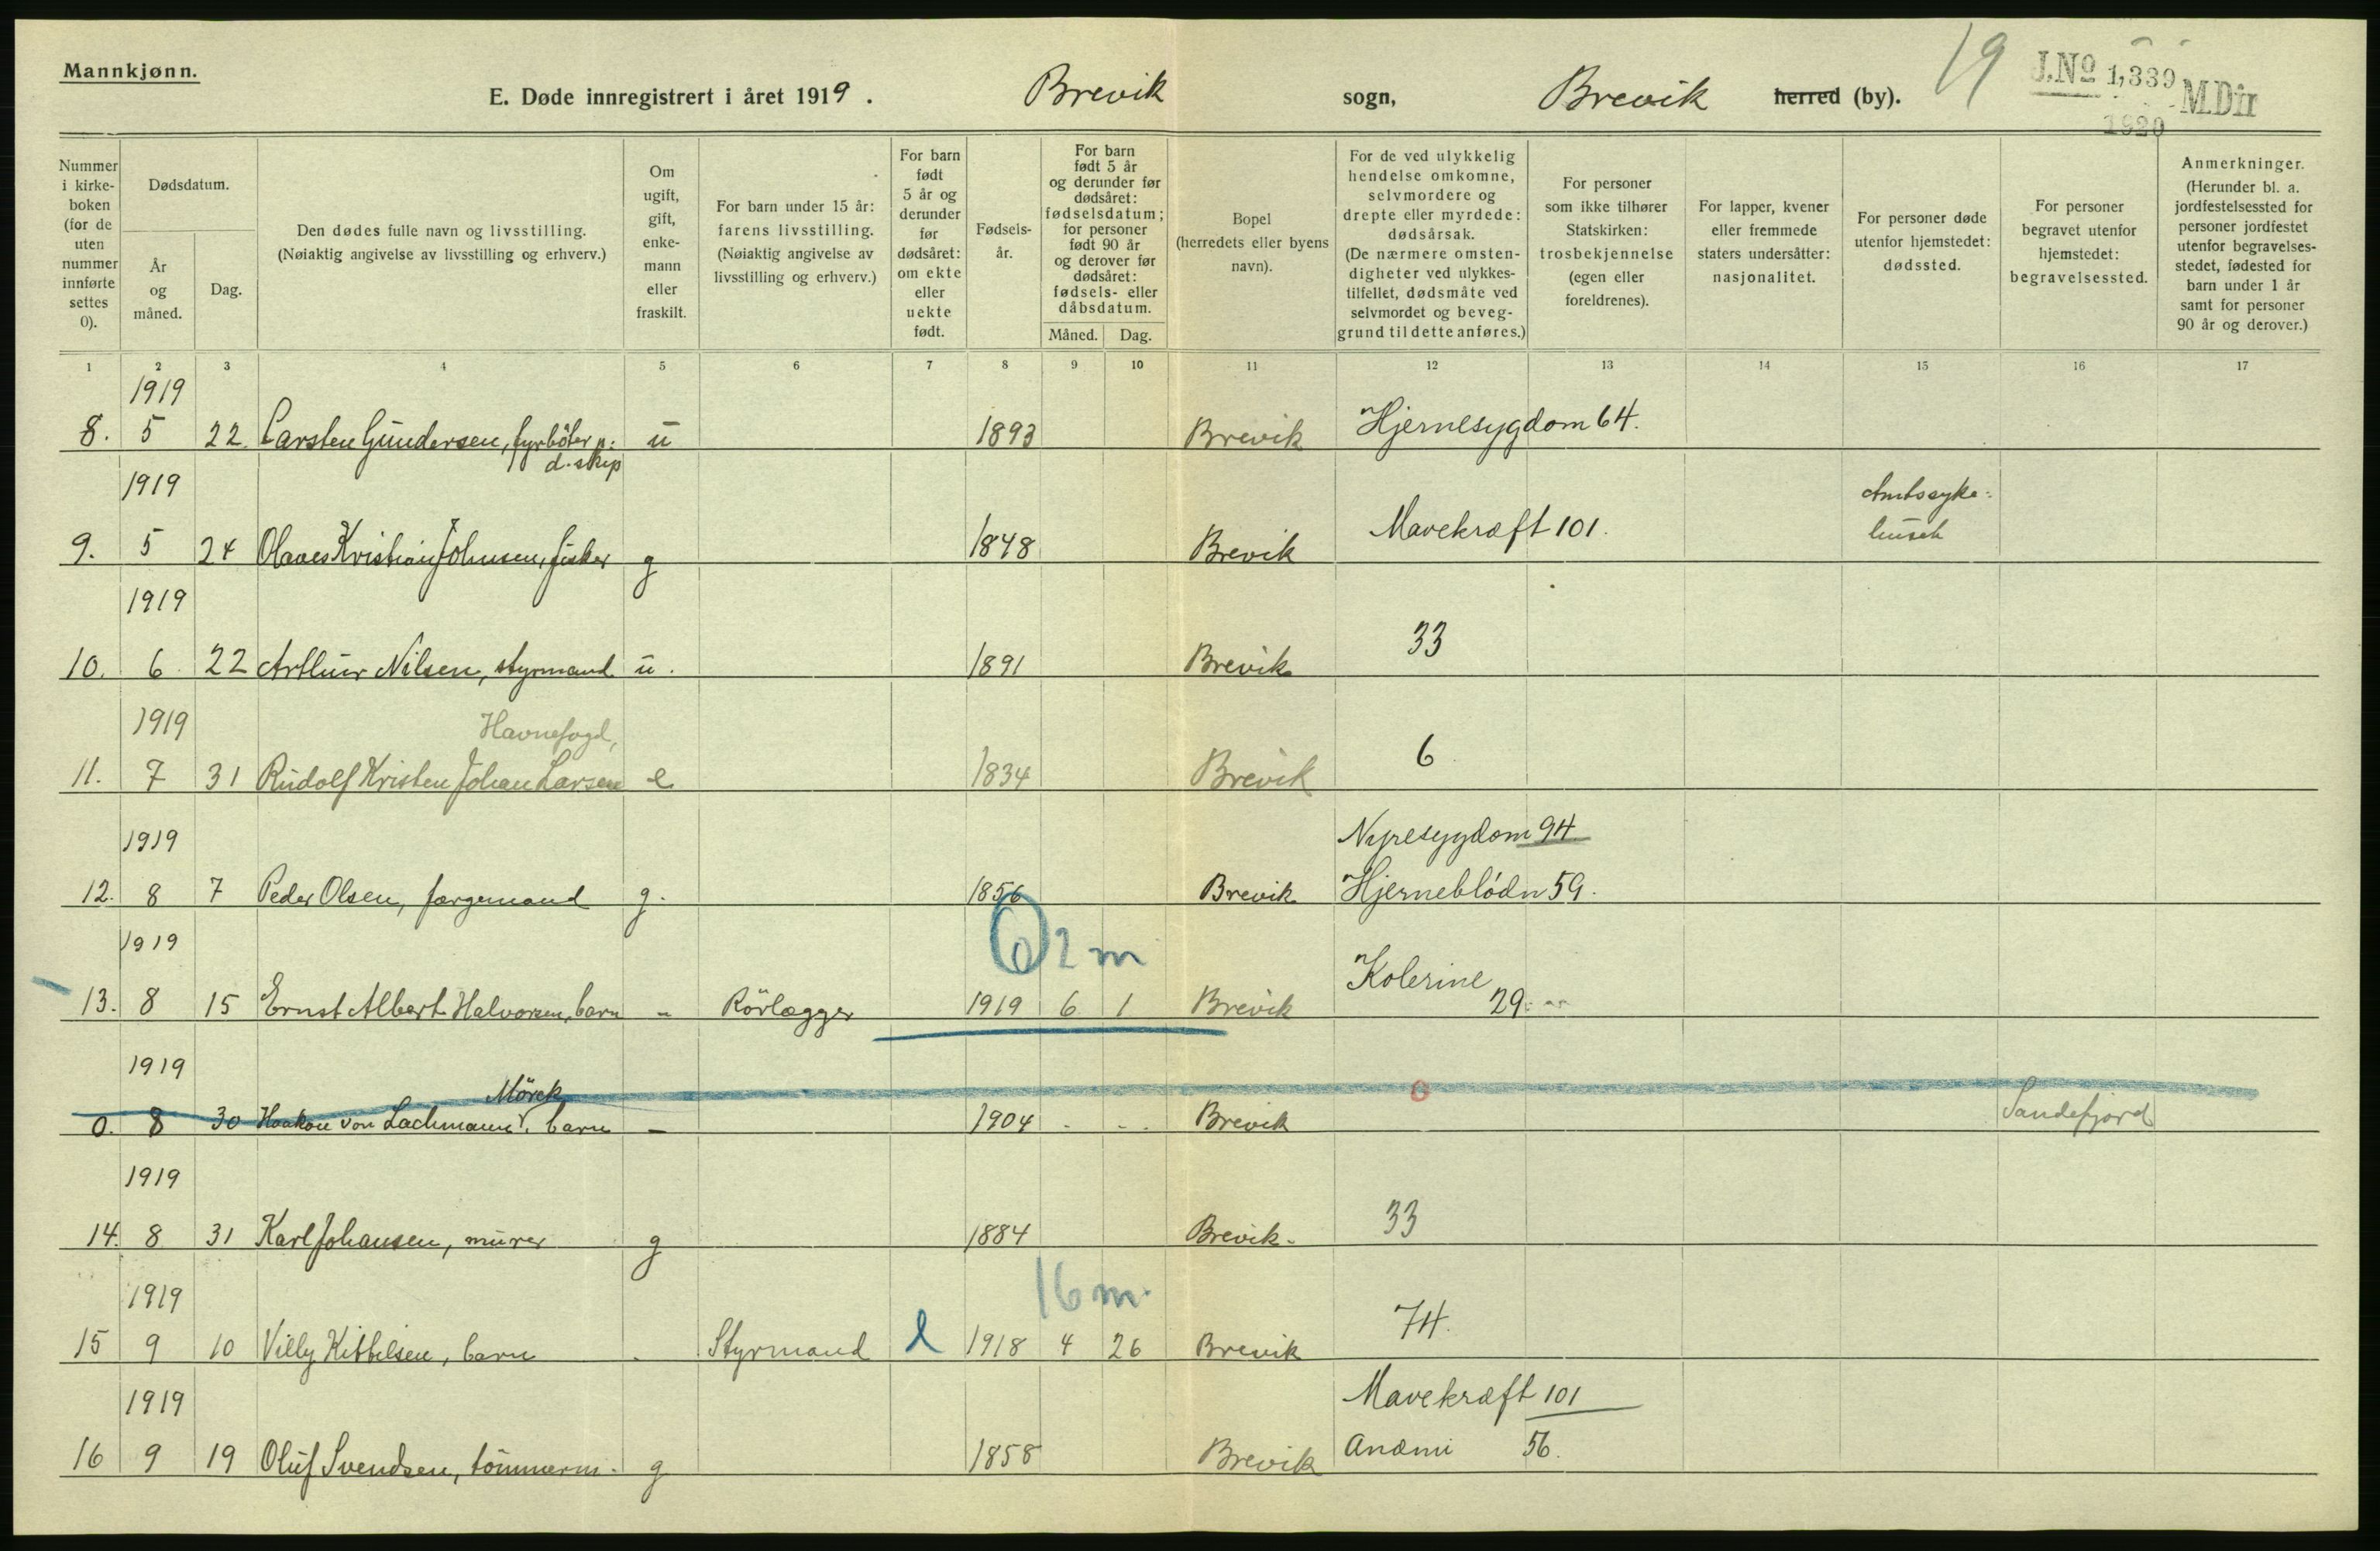 Mannkjønn.
E. Døde innregistrert i året 1919. Brevik sogn, Brevik herred (by). 19 J.No 1,339 M.Dir
1920
Nummer i kirkeboken (for de uten nummer innførte settes 0).
Dødsdatum.
År og måned.
Dag.
Den dødes fulle navn og livsstilling. (Nøiaktig angivelse av livsstilling og erhverv.)
Om ugift, gift, enkemann eller fraskilt.
For barn under 15 år: farens livsstilling. (Nøiaktig angivelse av livsstilling og erhverv.)
For barn født 5 år og derunder før dødsåret: om ekte eller uekte født.
Fødselsår.
For barn født 5 år og derunder før dødsåret: fødselsdatum; for personer født 90 år og derover før dødsåret: fødsels- eller dåbsdatum.
Måned. Dag.
Bopel (herredets eller byens navn).
For de ved ulykkelig hendelse omkomne, selvmordere og drepte eller myrdede: dødsårsak. (De nærmere omstendigheter ved ulykkestilfellet, dødsmåte ved selvmordet og beveggrund til dette anføres.)
For personer som ikke tilhører Statskirken: trosbekjennelse (egen eller foreldrenes).
For lapper, kvener eller fremmede staters undersåtter: nasjonalitet.
For personer døde utenfor hjemstedet: dødssted.
For personer begravet utenfor hjemstedet: begravelsessted.
Anmerkninger. (Herunder bl. a. jordfestelsessted for personer jordfestet utenfor begravelsesstedet, fødested for barn under 1 år samt for personer 90 år og derover.)
1 2 3 4 5 6 7 8 9 10 11 12 13 14 15 16 17
1919
8. 5 22. Carsten Gundersen, fyrbøter p. u 1893 Brevik Hjernesygdom 64.
d. skip
1919 Amtssyke-
9. 5 24 Olaves Kristian Johnsen, fisker g 1848 Brevik Mavekræft 101. huset
1919
10. 6 22 Arthur Nilsen, styrmand u. 1891 Brevik 33
1919 Havnefogd,
11. 7 31 Rudolf Kristen Johan Larsen e 1834 Brevik 6
1919 Nyresygdom 94
12. 8 7 Peder Olsen, færgemand g. 1856 Brevik Hjerneblödn 59.
1919 0 2 m
13. 8 15 Ernst Albert Halvorsen, barn - Rörlægger 1919 6 1 Brevik Kolerine 29.
1919 Mörck 0
0. 8 30 Haakon von Lachmann, barn - 1904 - - Brevik Sandefjord
1919
14. 8 31 Karl Johansen, murer g 1884 Brevik. 33
1919 16 m.
15 9 10 Villy Kittilsen, barn . Styrmand e 1918 4 26 Brevik 74.
1919 Mavekræft 101
16 9 19 Oluf Svendsen, tömmerm. g 1858 Brevik Anæmi 56.